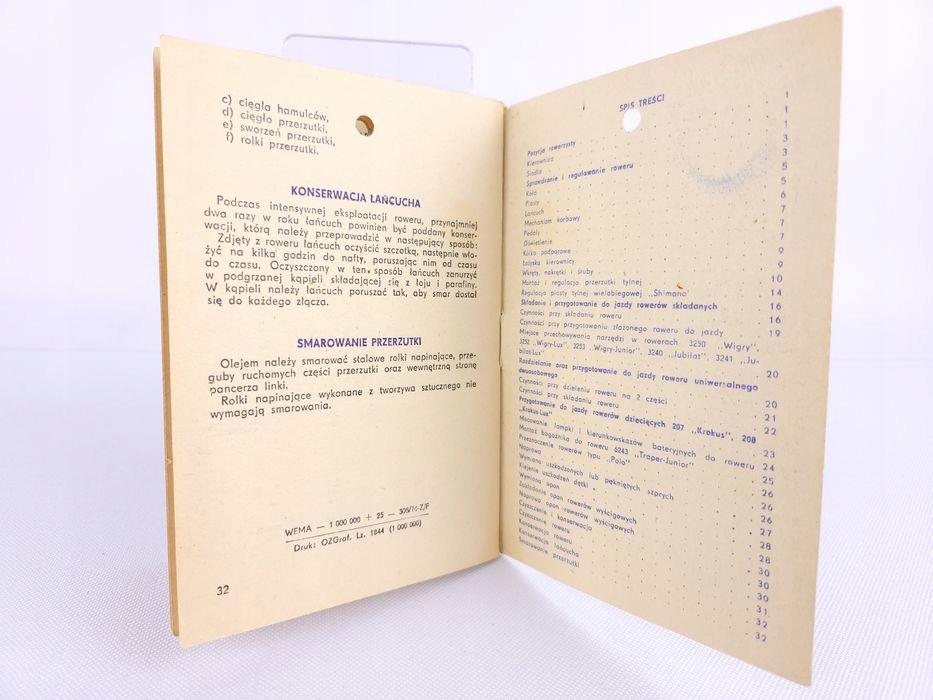 c) cięgła hamulców,
d) cięgło przerzutki,
e) sworzeń przerzutki,
f) rolki przerzutki.
KONSERWACJA ŁAŃCUCHA
Podczas intensywnej eksploatacji roweru, przynajmniej
dwa razy w roku łańcuch powinien być poddany konser-
wacji, którą należy przeprowadzić w następujący sposób:
Zdjęty z roweru łańcuch oczyścić szczotką, następnie wło-
żyć na kilka godzin do nafty, poruszając nim od czasu
do czasu. Oczyszczony w ten sposób łańcuch zanurzyć
w podgrzanej kąpieli składającej się z łoju i parafiny.
W kąpieli należy łańcuch poruszać tak, aby smar dostał
się do każdego złącza.
SMAROWANIE PRZERZUTKI
Olejem należy smarować stalowe rolki napinające, prze-
guby ruchomych części przerzutki oraz wewnętrzną stronę
pancerza linki.
Rolki napinające wykonane z tworzywa sztucznego nie
wymagają smarowania.
WEMA — 1 000 000 + 25 —
Druk: OZGraf. Lz. 1844 (1 000 000)
32
SPIS TREŚCI
Pozycja rowerzysty 1
Kierownica 1
Siodło 1
Sprawdzanie i regulowanie roweru 3
Koła 3
Piasty 5
Łańcuch 5
Mechanizm korbowy 6
Pedały 7
Oświetlenie 7
Kółka podporowe 9
Łożyska kierownicy 9
Wkręty, nakrętki i śruby 9
Montaż i regulacja przerzutki tylnej 10
Regulacja piasty tylnej wielobiegowej „Shimano" 14
Składanie i przygotowanie do jazdy rowerów składanych 16
Czynności przy składaniu roweru 16
Czynności przy przygotowaniu złożonego roweru do jazdy 19
Miejsce przechowywania narzędzi w rowerach 3250 „Wigry",
3252 „Wigry-Lux", 3253 „Wigry-Junior", 3240 „Jubilat", 3241 „Ju-
bilat-Lux" 20
Rozdzielanie oraz przygotowanie do jazdy roweru uniwersalnego
dwuosobowego 20
Czynności przy dzieleniu roweru na 2 części 21
Czynności przy składaniu roweru 22
Przygotowanie do jazdy rowerów dziecięcych 207 „Krokus", 208
„Krokus-Lux" 23
Mocowanie lampki i kierunkowskazów bateryjnych do roweru 24
Montaż bagażnika do roweru 6243 „Traper-Junior" 25
Przeznaczenie rowerów typu „Polo" 26
Naprawa 26
Wymiana uszkodzonych lub pękniętych szprych 26
Klejenie uszkodzeń dętki 27
Wymiana opon 28
Zakładanie opon rowerów wyścigowych 28
Naprawa opon rowerów wyścigowych 30
Czyszczenie i konserwacja 30
Czyszczenie roweru 30
Konserwacja roweru 31
Konserwacja łańcucha 32
Smarowanie przerzutki 32